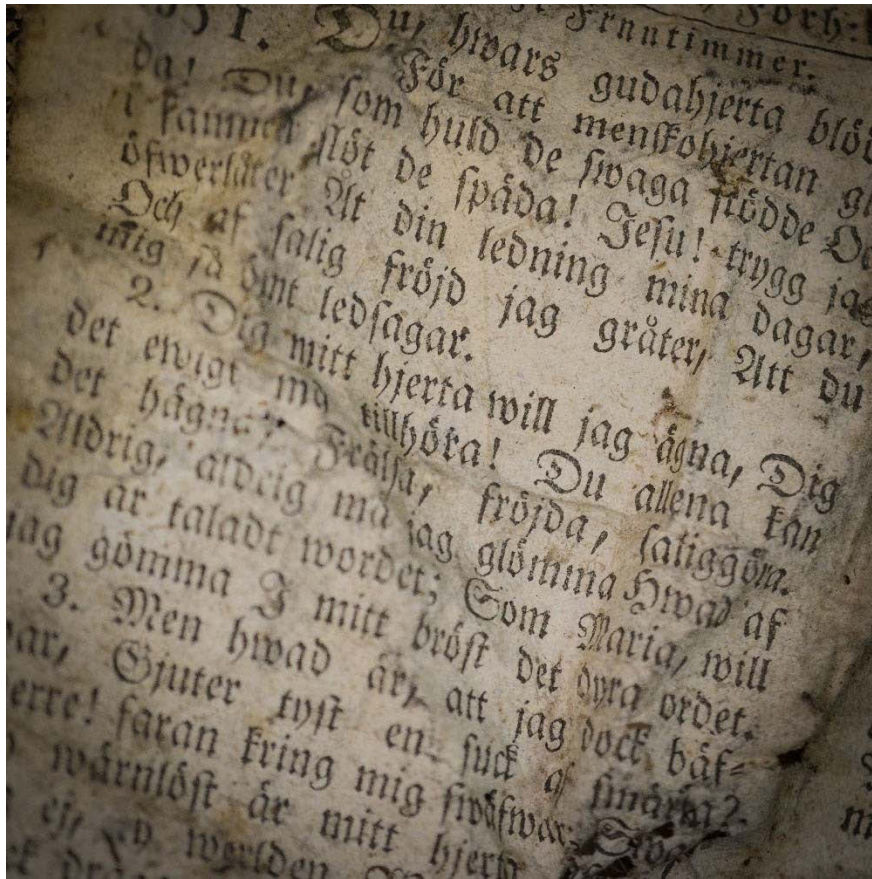 Förh:
Fruntimmer.
1. Du, hwars gudahjerta blöd
För att menskohjertan gl
da! Du, som huld de swaga stödde Oc
i famnen slöt de späda! Jesu! trygg jag
öfwerlåter Åt din ledning mina dagar,
Och af salig fröjd jag gråter, Att du
mig så ömt ledsagar.
2. Dig mitt hjerta will jag ägna, Dig
det ewigt må tillhöra! Du allena kan
det hägna, Frälsa, fröjda, saliggöra.
Aldrig, aldrig må jag glömma Hwad af
dig är taladt wordet; Som Maria, will
jag gömma I mitt bröst det dyra ordet.
3. Men hwad är, att jag dock bäf-
war, Gjuter tyst en suck af smärta?
erre! faran kring mig swäfwar:
wärnlöst är mitt hjerta
ej, werlden